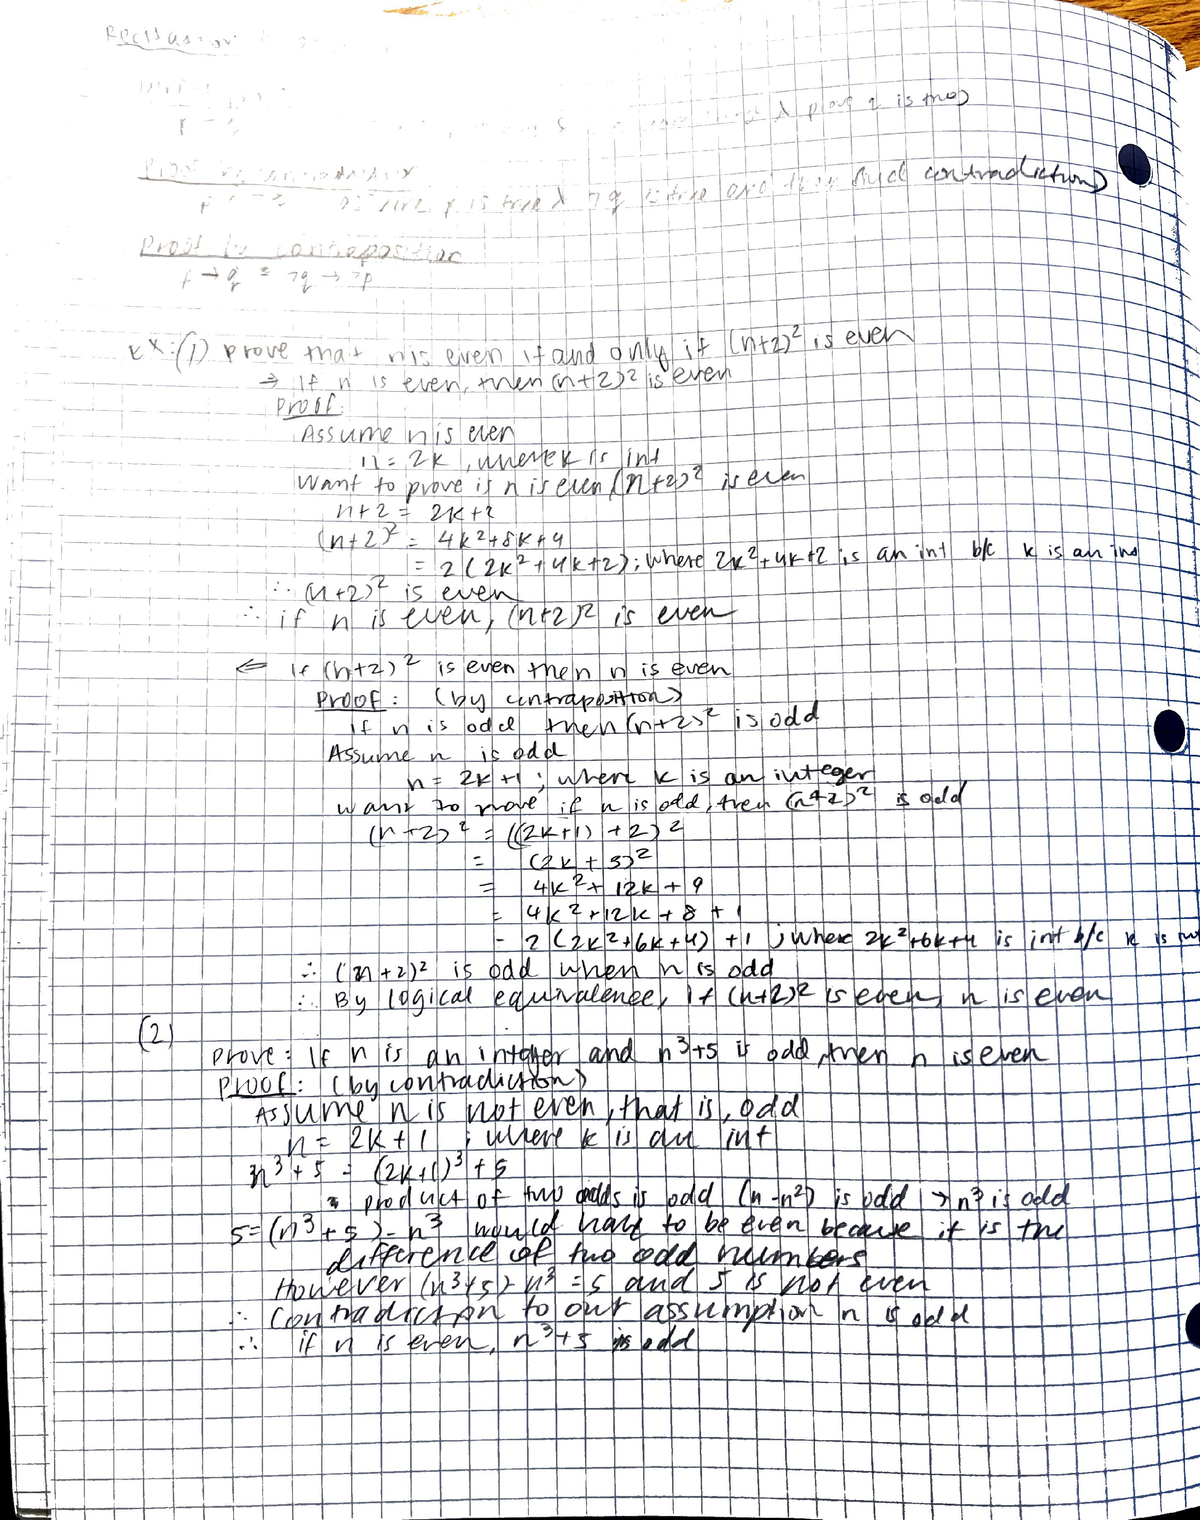 Recitation
Proof by contradiction
find contradiction)
Proof by contraposition
p → q ≡ ¬q → ¬p
Ex: (1) prove that n is even if and only if (n+2)² is even
⇒ if n is even, then (n+2)² is even
Proof:
Assume n is even
n = 2k, where k is int
Want to prove if n is even (n+2)² is even
n+2 = 2k+2
(n+2)² = 4k²+8k+4
= 2(2k²+4k+2); where 2k²+4k+2 is an int b/c k is an int
∴ (n+2)² is even
∴ if n is even, (n+2)² is even
⇐ if (n+2)² is even then n is even
Proof: (by contraposition)
if n is odd then (n+2)² is odd
Assume n is odd
n = 2k+1; where k is an integer
want to prove if n is odd, then (n+2)² is odd
(n+2)² = ((2k+1)+2)²
= (2k+3)²
= 4k²+12k+9
= 4k²+12k+8+1
= 2(2k²+6k+4)+1; where 2k²+6k+4 is int b/c k is int
∴ (n+2)² is odd when n is odd
∴ By logical equivalence, if (n+2)² is even, n is even
(2)
Prove: If n is an integer and n³+5 is odd, then n is even
Proof: (by contradiction)
Assume n is not even, that is, odd
n = 2k+1; where k is an int
n³+5 = (2k+1)³+5
product of two odds is odd (n·n²) is odd → n³ is odd
5=(n³+5)-n³ would have to be even because it is the
difference of two odd numbers
However (n³+5)-n³ = 5 and 5 is not even
∴ Contradiction to our assumption n is odd
∴ if n is even, n³+5 is odd